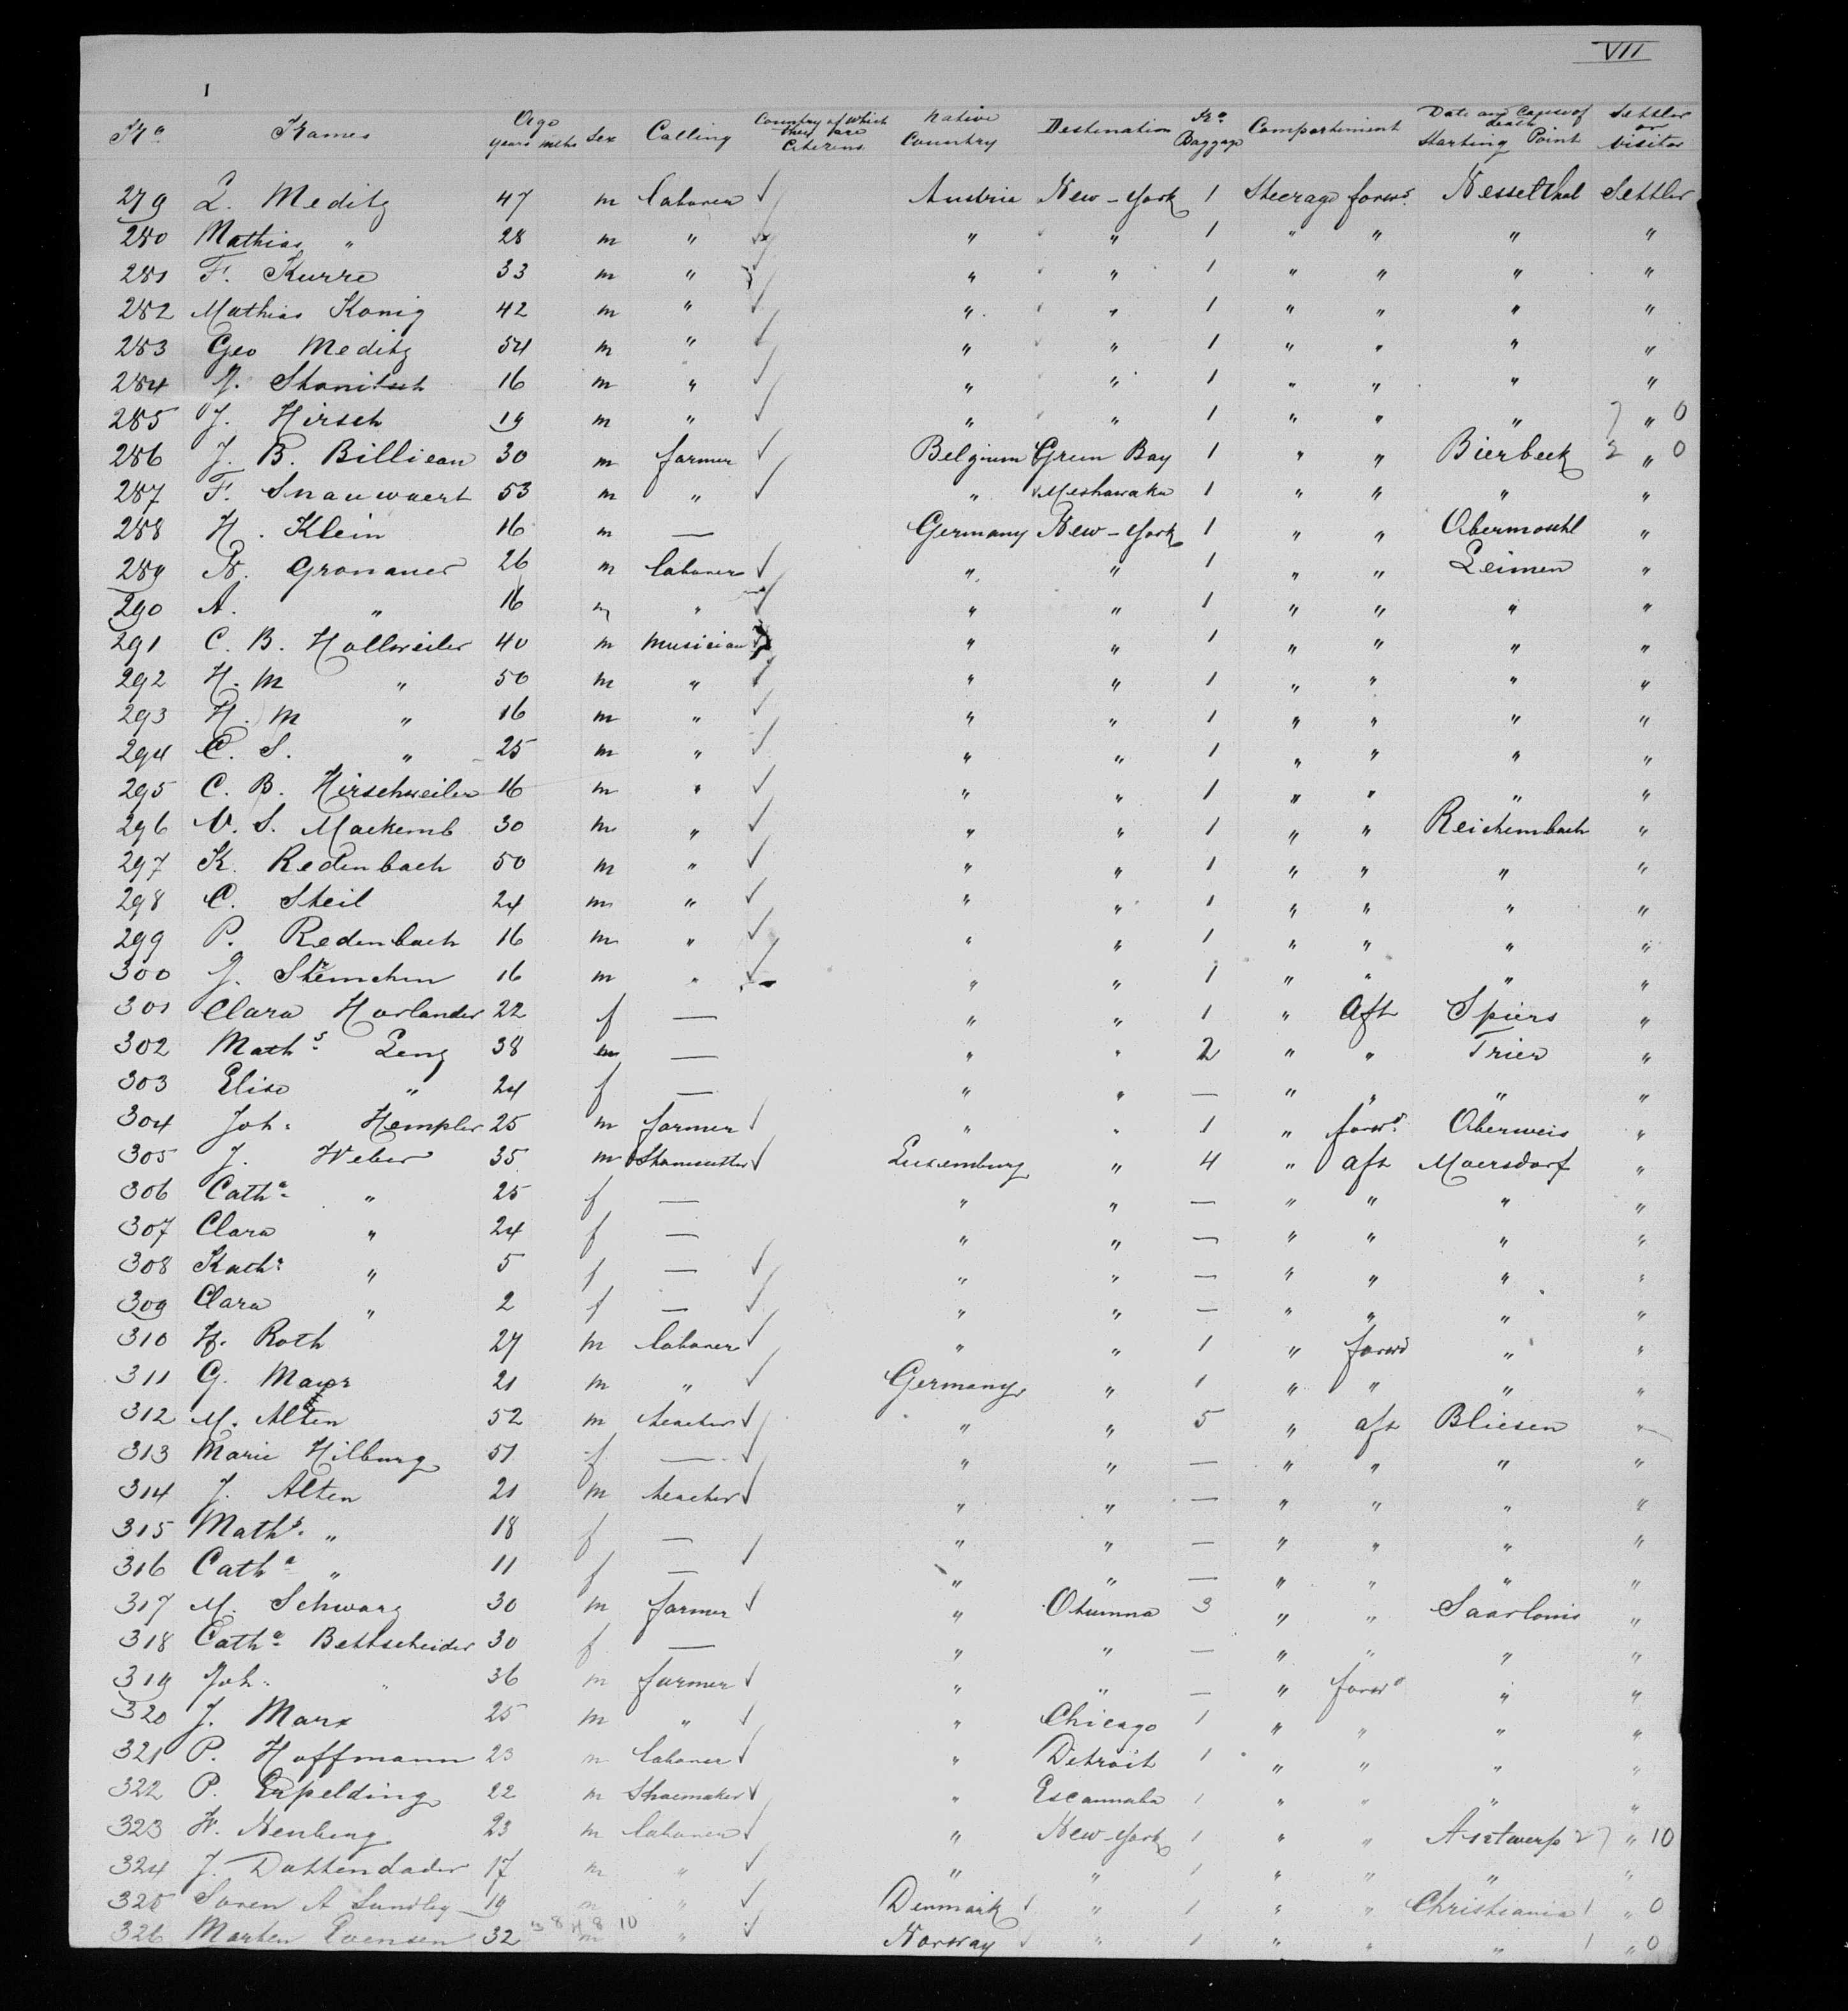 VII
1
No Names Age years mths Sex Calling Country of Which they are Citizens Native Country Destination No Baggage Compartiment Date and Cause of death Starting Point Settler or Visitor
279 L. Meditz 47 m labourer ✓ Austria New-York 1 Steerage forwd. Nesselthal Settler
280 Mathias " 28 m " " " 1 " " " "
281 F. Kurre 33 m " ✓ " " 1 " " " "
282 Mathias Konig 42 m " ✓ " " 1 " " " "
283 Geo Meditz 54 m " ✓ " " 1 " " " "
284 J. Stonitsch 16 m " ✓ " " 1 " " " "
285 J. Hirsch 19 m " ✓ " " 1 " " " 7 " 0
286 J. B. Billiean 30 m farmer ✓ Belgium Green Bay 1 " " Bierbeek 2 " 0
287 F. Snauwaert 53 m " ✓ " Meshawaka 1 " " " "
288 H. Klein 16 m — Germany New-York 1 " " Obermoschl "
289 N. Gronauer 26 m labourer ✓ " " 1 " " Leimen "
290 A. " 16 m " ✓ " " 1 " " " "
291 C. B. Hollweiler 40 m musician " " 1 " " " "
292 H. M " 50 m " ✓ " " 1 " " " "
293 H. M " 16 m " ✓ " " 1 " " " "
294 C. S. " 25 m " ✓ " " 1 " " " "
295 C. B. Hirschweiler 16 m " ✓ " " 1 " " " "
296 V. S. Mackemb 30 m " ✓ " " 1 " " Reichembach "
297 K. Redenbach 50 m " ✓ " " 1 " " " "
298 C. Steil 24 m " ✓ " " 1 " " " "
299 P. Redenbach 16 m " ✓ " " 1 " " " "
300 J. 16 m " ✓ " " 1 " " " "
301 Clara Horlander 22 f — " " 1 " aft Spiers "
302 Maths. Lenz 38 m — " " 2 " " Trier "
303 Elise " 24 f — " " — " " " "
304 Joh. Hempler 25 m farmer ✓ " " 1 " forwd. Oberweis "
305 J. Weber 35 m Stonecutter ✓ Luxemburg " 4 " aft Moersdorf "
306 Catha. " 25 f — " " — " " " "
307 Clara " 24 f — " " — " " " "
308 Katha. " 5 f — ✓ " " — " " " "
309 Clara " 2 f — ✓ " " — " " " "
310 H. Roth 27 m labourer ✓ " " 1 " forwd " "
311 G. Mayer 21 m " ✓ Germany " 1 " " " "
312 M. Alten 52 m teacher ✓ " " 5 " aft Bliesen "
313 Marie Hilburg 51 f — ✓ " " — " " " "
314 J. Alten 21 m teacher ✓ " " — " " " "
315 Maths. " 18 f — " " — " " " "
316 Catha. " 11 f — ✓ " " — " " " "
317 M. Schwarz 30 m farmer ✓ " Otumna 3 " " Saarlouis "
318 Catha. Bettscheider 30 f — " " — " " " "
319 Joh. " 36 m farmer ✓ " " — " forwd " "
320 J. Marx 25 m " ✓ " Chicago 1 " " " "
321 P. Hoffmann 23 m labourer ✓ " Detroit 1 " " " "
322 P. Erpelding 22 m Shoemaker ✓ " Escannaba 1 " " " "
323 W. Nenberg 23 m labourer ✓ " New-York 1 " " Antwerp 27 " 10
324 J. Dattendader 17 m " ✓ " " 1 " " " "
325 Soren A Sundby 19 m " ✓ Denmark " 1 " " Christiania 1 " 0
326 Marten Evensen 32 m " ✓ Norway " 1 " " " 1 " 0